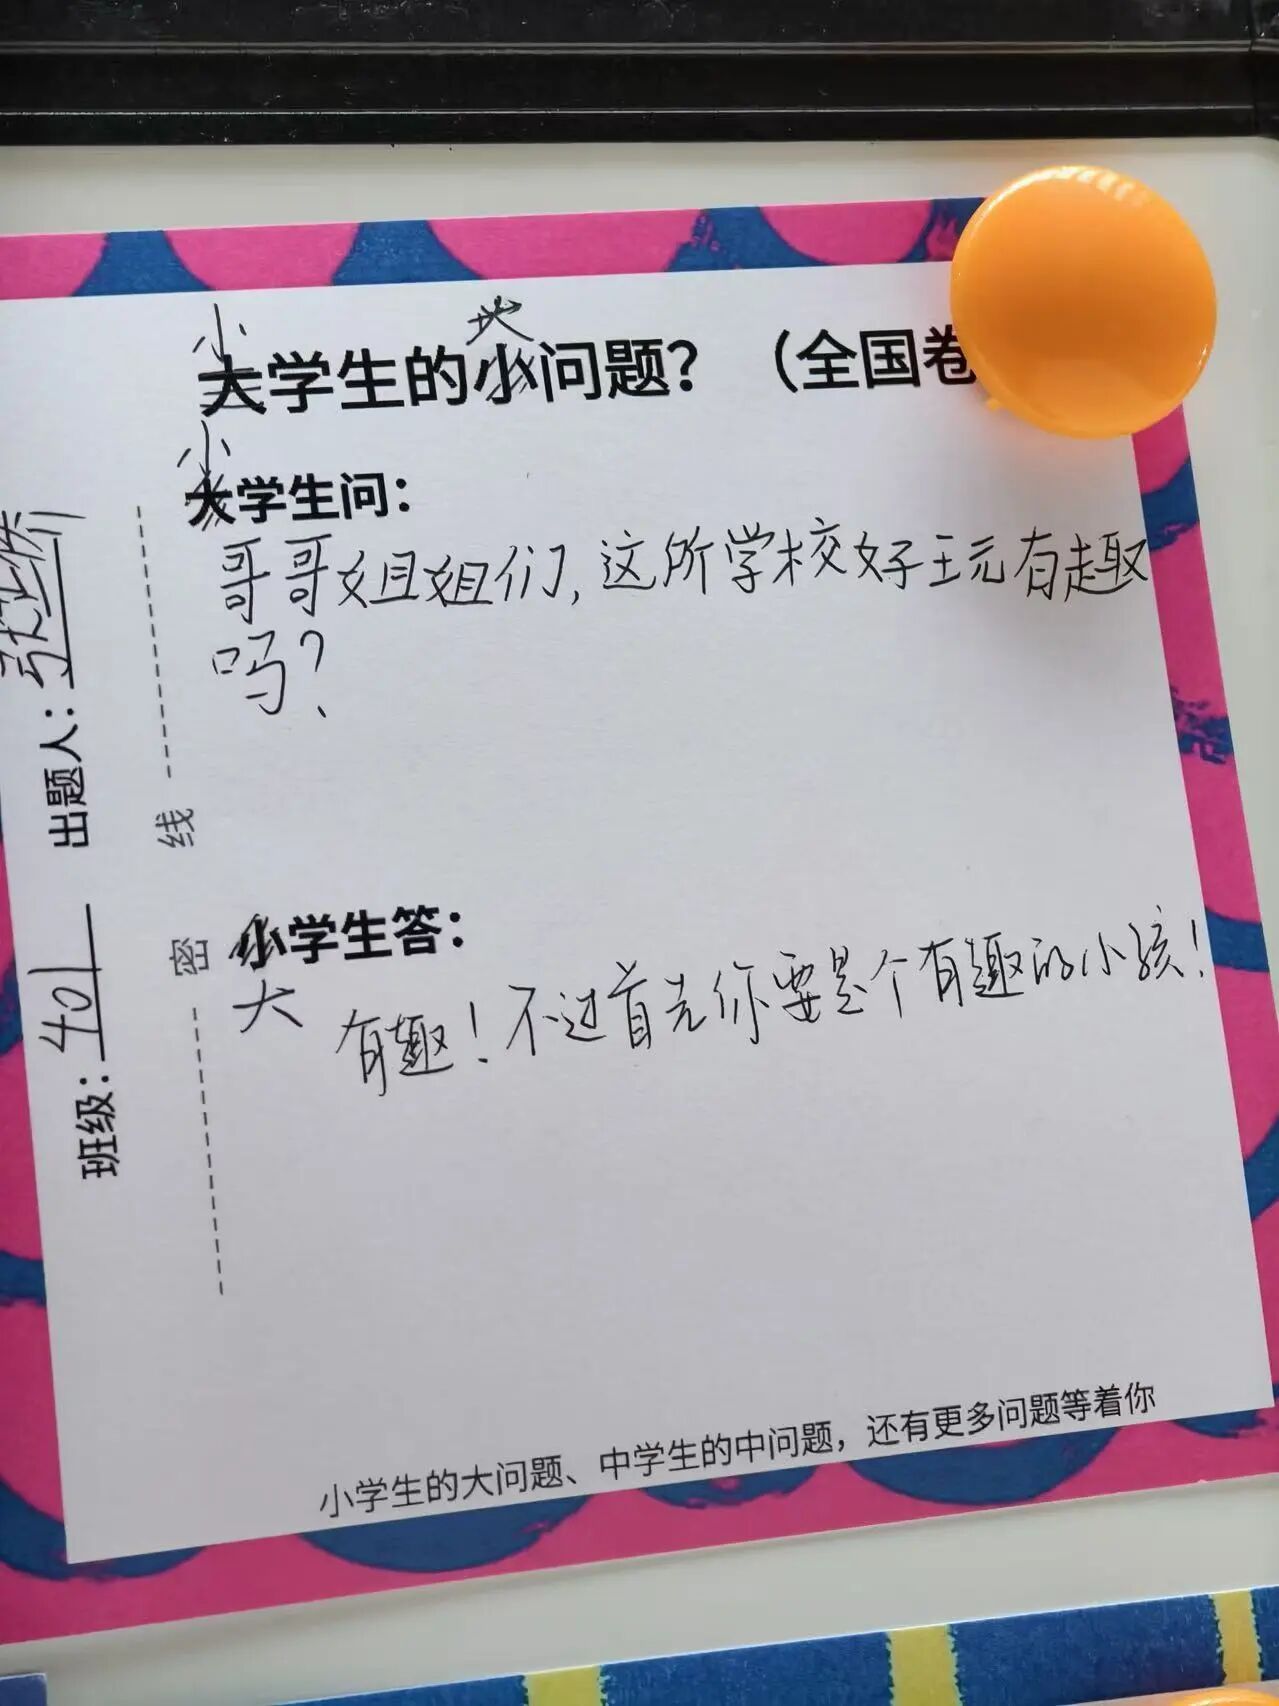 小 大
大学生的小问题？（全国卷
小
大学生问：
哥哥姐姐们，这所学校好玩有趣
吗？
小学生答：
大
有趣！不过首先你要是个有趣的小孩！
小学生的大问题、中学生的中问题，还有更多问题等着你
密 线
班级：401 出题人：